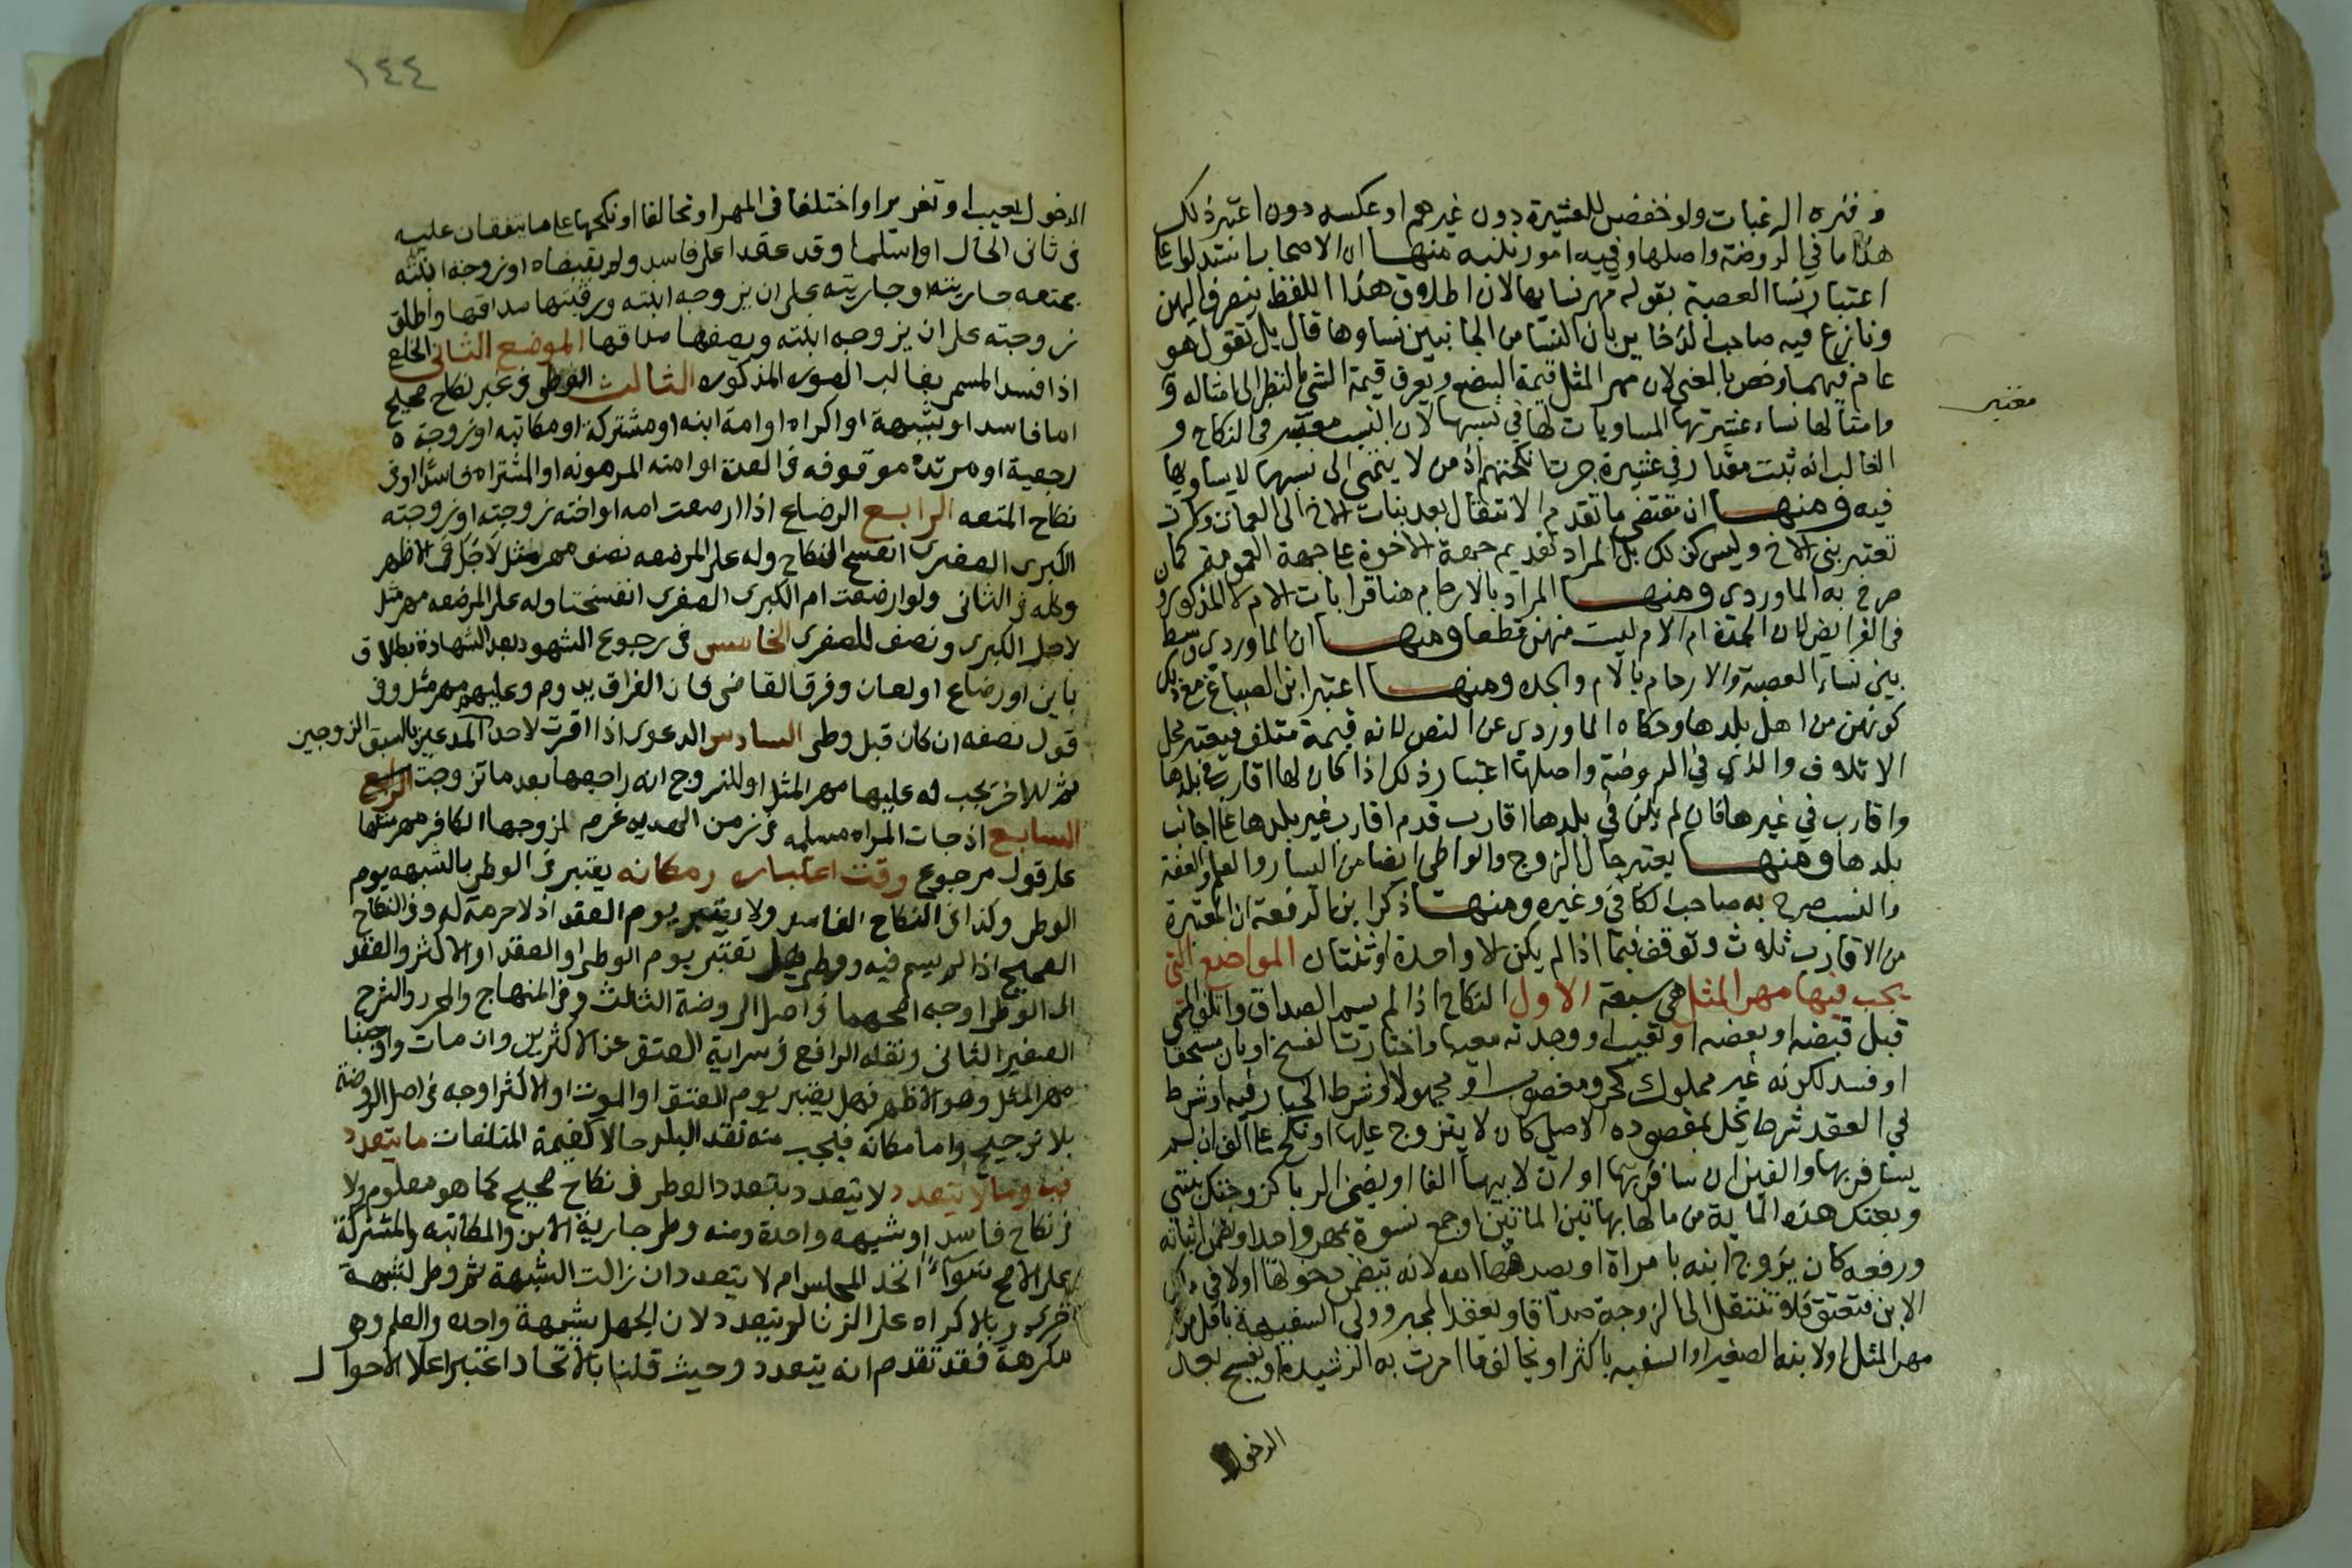 وفتره الرغبات ولو خفضن للعشيرة دون غيرهم او عكسه دون اعتبر ذلك
هذا ما في الروضة واصلها وفيه امور ننبه منها ان الاصحاب استدلوا على
اعتبار نسا العصبة بقوله مهر نسايها لان اطلاق هذا اللفظ ينصرف اليهن
ونازع فيه صاحب الذخاير بان النسا من الجانبين نساوها قال بل نقول هو
عام فيهما وخص بالمعنى لان مهر المثل قيمة البضع ويعرف قيمة الشي بالنظر الى امثاله
وامثالها نساء عشيرتها المساويات لها في نسبها لان النسب معتبر في النكاح و
معتبر
الغالب انه ثبت مقدار في عشيرة جرت انكحتهم اذ من لا ينتمي الى نسبها لا يساويها
فيه ومنها ان مقتضى ما تقدم الانتقال بعد بنات الاخ الى العمات وكان
تعتبر بنى الاخ وليس كذلك بل المراد تقديم جهة الاخوة على جهة العمومة كما
صرح به الماوردي ومنها المراد بالارحام هنا قرابات الام لا المذكورون
في الفرايض لان الجدة ام الام ليست منهن قطعا ومنها ان الماوردي وسط
بين نساء العصبة والارحام بالام والجده ومنها اعتبر ابن الصباغ مع ذلك
كونهن من اهل بلدها وحكاه الماوردي عن النص لانه قيمة متلف فيعتبر محل
الاتلاف والذي في الروضة واصلها اعتبار ذلك اذا كان لها اقارب في بلدها
واقارب في غيرها فان لم يكن في بلدها اقارب قدم اقارب غير بلدها على اجانب
بلدها ومنها يعتبر حال الزوج والواطى ايضا من اليسار والعلم والعفة
والنسب صرح به صاحب الكافي وغيره ومنها ذكر ابن الرفعة ان المعتبرة
من الاقارب ثلاث وتوقف فيما اذا لم يكن الا واحدة او ثنتان المواضع التي
يجب فيها مهر المثل هي سبعة الاول النكاح اذا لم يسم الصداق او تلف المسمى
قبل قبضه او بعضه او تعيب او وجدته معيبا واختارت الفسخ او بان مستحقا
او فسد لكونه غير مملوك كحر ومغصوب او مجهولا او شرط الخيار فيه او شرط
في العقد شرط يخل بمقصوده الاصلي كان لا يتزوج عليها او نكح على الف ان لم
يسافر بها والفين ان سافر بها او ان لابيها الفا او يضمن الربا كزوجتك بنتي
وبعتك هذه الماية من مالها بهاتين الماتين او جمع نسوة بمهر واحد او تضمن اثباته
ورفعه كان يزوج ابنه بامراة او يصدقها امه لانه يتضمن دخولها اولا في ملك
الابن فتعتق فلا تنتقل الى الزوجة صداقا او بعقد المجبر وولي السفيهة باقل من
مهر المثل او لابنه الصغير او السفيه باكثر او يخالف ما امرت به الرشيدة او يفسخ بعد
الدخول
١٤٤
الدخول بعيب او تغرير او اختلفا في المهر او تحالفا او نكحها على ما يتفقان عليه
في ثاني الحال او اسلما وقد عقدا على فاسد ولم يقبضاه او زوجه ابنته
بمتعه جاريته او جاريته على ان يزوجه ابنته ورقبتها صداقها او طلق
زوجته على ان يزوجه ابنته وبضعها صداقها الموضع الثاني الخلع
اذا فسد المسمى بغالب الصور المذكوره الثالث الوطي في غير نكاح صحيح
اما فاسد او بشبهة او اكراه او امة ابنه او مشتركة او مكاتبه او زوجة
رجعية او مرتدة موقوفه في العدة او امته المرهونه او المشتراه فاسدا او في
نكاح المتعه الرابع الرضاع اذا ارضعت امه او اخته زوجته او زوجته
الكبرى الصغرى انفسخ النكاح وله على المرضعه نصف مهر مثل لاجل في الاظهر
وكله في الثاني ولو ارضعت ام الكبرى الصغرى انفسختا وله على المرضعه مهر مثل
لاجل الكبرى ونصف للصغرى الخامس في رجوع الشهود بعد الشهادة بطلاق
باين او رضاع او لعان وفرق القاضي فان الفراق يدوم وعليهم مهر مثل وفي
قول نصفه ان كان قبل وطى السادس الدعوى اذا اقرت لاحد المدعيين بالسبق الزوجين
ثم للاخر يجب له عليها مهر المثل او للزوج انه راجعها بعد ما تزوجت
السابع اذ جات المراه مسلمه في زمن الهدنه غرم لزوجها الكافر مهر مثلها
على قول مرجوع وقت اعتباره ومكانه يعتبر في الوطى بالشبهه يوم
الوطى وكذا في النكاح الفاسد ولا يعتبر يوم العقد اذ لا حرمة له وفي النكاح
الصحيح اذا لم يسم فيه ووطى هل تعتبر يوم الوطى او العقد او الاكثر والعقد
الى الوطى اوجه اصحهما في اصل الروضة الثالث وفي المنهاج والمحرر والشرح
الصغير الثاني ونقله الرافعي في سراية العتق عن الاكثرين وان مات واوجبنا
مهر المثل وهو الاظهر فهل يعتبر يوم العقد او الموت او الاكثر اوجه في اصل الروضة
بلا ترجيح واما مكانه فيجب من نقد البلد حالا كقيمة المتلفات ما يتعدد
فيه وما لا يتعدد لا يتعدد بتعدد الوطى في نكاح صحيح كما هو معلوم ولا
في نكاح فاسد او شبهه واحدة ومنه وطى جارية الابن والمكاتبه والمشتركة
على الاصح سواء اتخد المجلس ام لا يتعدد ان زالت الشبهة ثم وطى لشبهة
اخرى وبالاكراه على الزنا لو تعدد لان الجهل بشبهة واحده والعلم وهو
مكرهة فقد تقدم انه يتعدد وحيث قلنا بالاتحاد اعتبر اعلا الاحوال